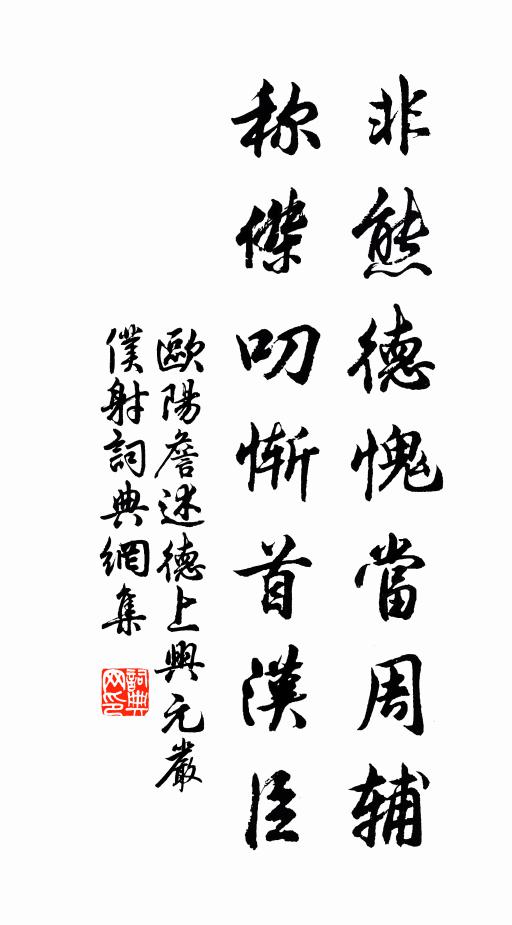 非熊德愧當周輔
称傑叨慚首漢臣
歐陽詹述德上興元嚴
僕射詞典網集
詞典
网印